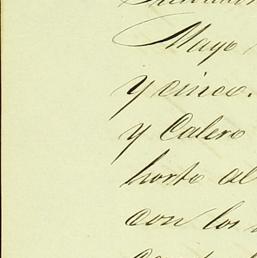 Mayo
y cinco.
y Calero
horto al
con los